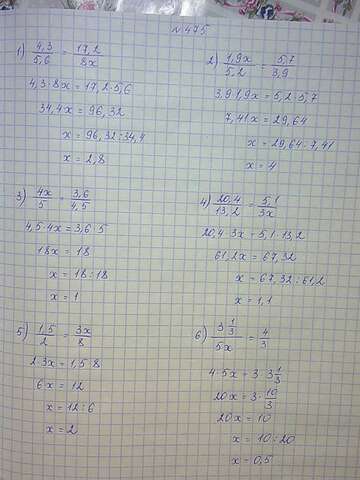 №475
1) 4,3/5,6 = 17,2/8x
4,3·8x = 17,2·5,6
34,4x = 96,32
x = 96,32:34,4
x = 2,8
2) 1,9x/5,2 = 5,7/3,9
3,9·1,9x = 5,2·5,7
7,41x = 29,64
x = 29,64·7,41
x = 4
3) 4x/5 = 3,6/4,5
4,5·4x = 3,6·5
18x = 18
x = 18:18
x = 1
4) 20,4/13,2 = 5,1/3x
20,4·3x = 5,1·13,2
61,2x = 67,32
x = 67,32:61,2
x = 1,1
5) 1,5/2 = 3x/8
2·3x = 1,5·8
6x = 12
x = 12:6
x = 2
6) 3 1/3/5x = 4/3
4·5x = 3·3 1/3
20x = 3·10/3
20x = 10
x = 10:20
x = 0,5